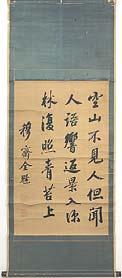 空山不見人但聞
人語響返景入深
林復照青苔上
穆齋